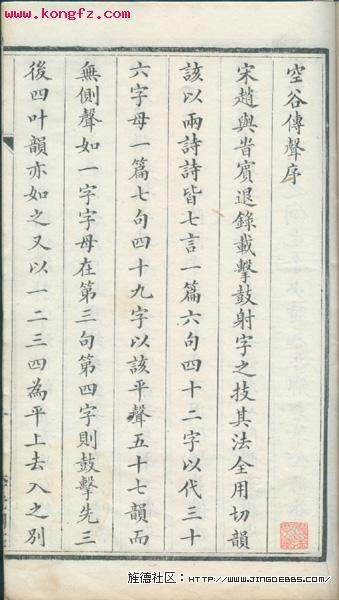 空谷傳聲序
宋趙與旹賓退錄載擊鼓射字之技其法全用切韻
該以兩詩詩皆七言一篇六句四十二字以代三十
六字母一篇七句四十九字以該平聲五十七韻而
無側聲如一字字母在第三句第四字則鼓擊先三
後四叶韻亦如之又以一二三四為平上去入之別
※孔夫子旧书网
www.kongfz.com
旌德社区:HTTP://WWW.JINGDEBBS.COM/